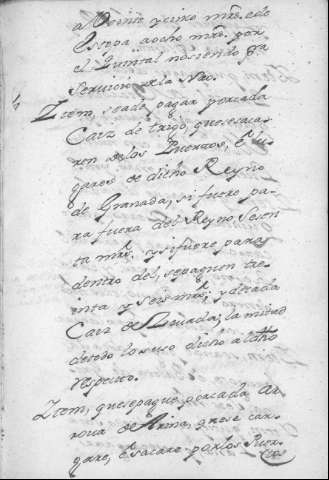 a Veinte y cinco mrs. e de
estopa a ocho mrs. por
el Quintal no siendo pa
servicio de la Nao.
Item, se a de pagar por cada
Caiz de trigo, que se saca-
ren de los Puertos, é lu-
gares de dicho Reyno
de Granada, si fuere pa-
ra fuera del Reyno Seten-
ta mrs. y si fuere para
dentro del, se paguen tre-
inta y seis mrs. y de cada
Caiz de Cevada, la mitad
de todo lo suso dicho a l dho
respecto.
Item, que se pague por cada Ar-
rova de Arina, que se car-
gare, é sacare por los Puer-
tos